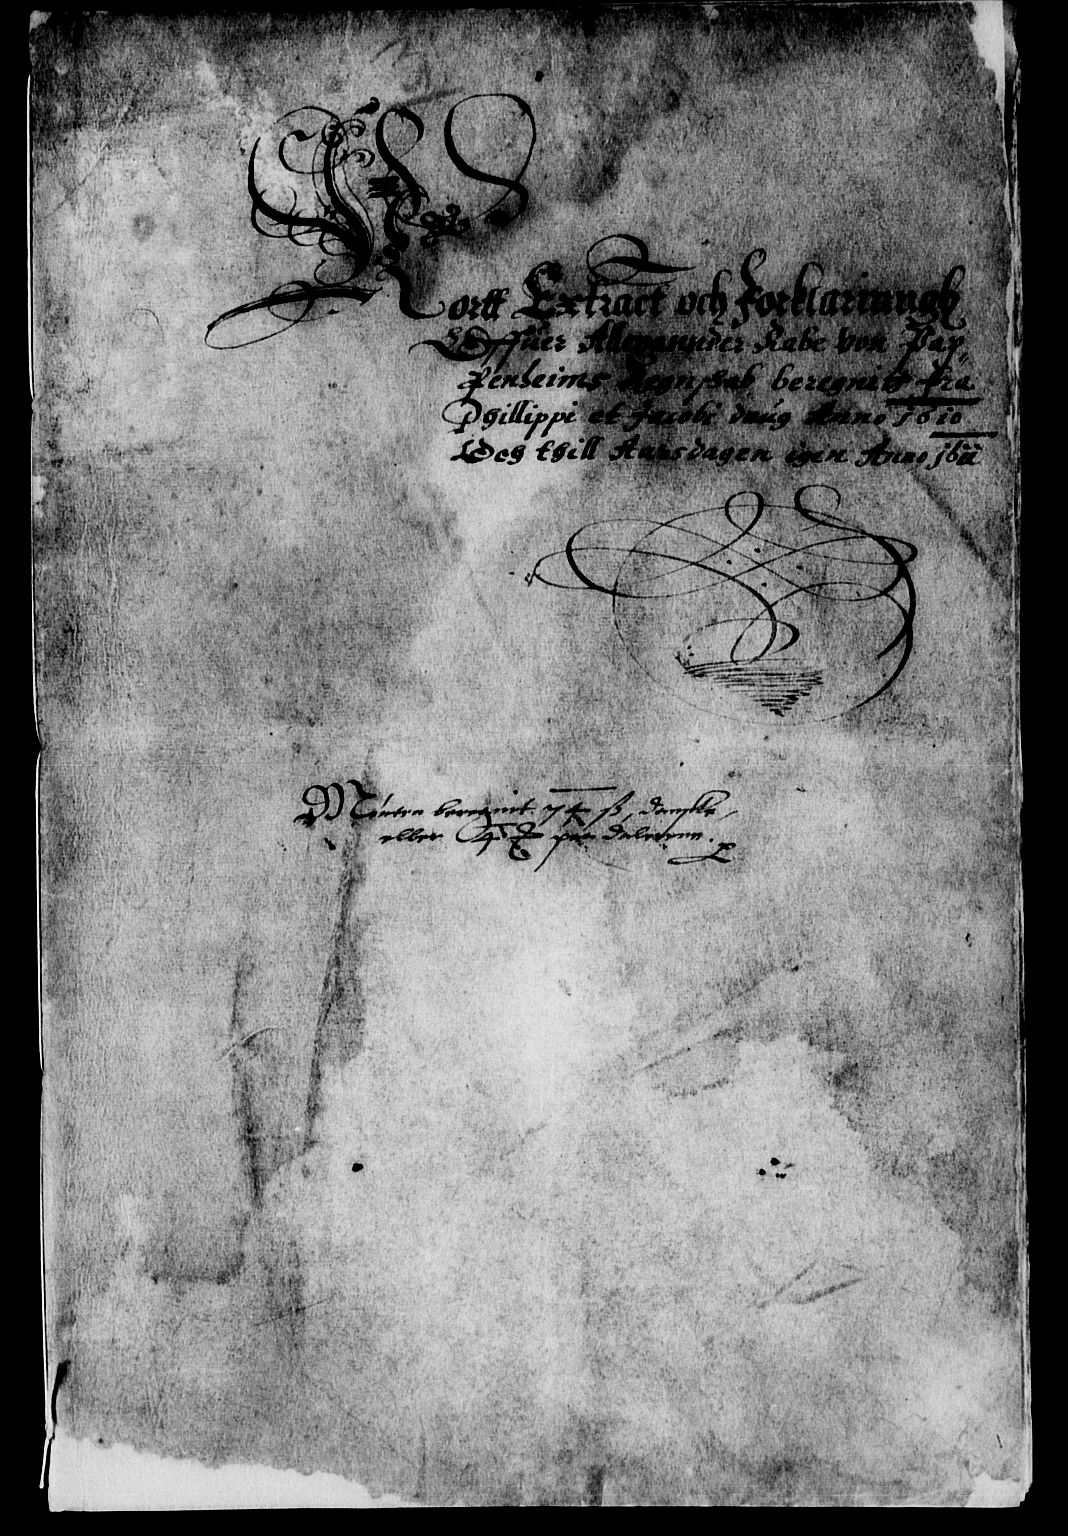 Kortt Extract och Forklariungh
Offuer Allexannder Rabe von Pap,
penheims Regnskab beregnitt fra
Phillippi et Jacobi daug Anno 1610
Och thill Aarsdagen igen Anno 1611
Mönten beregnit 74 ß, danske,
eller daleren.